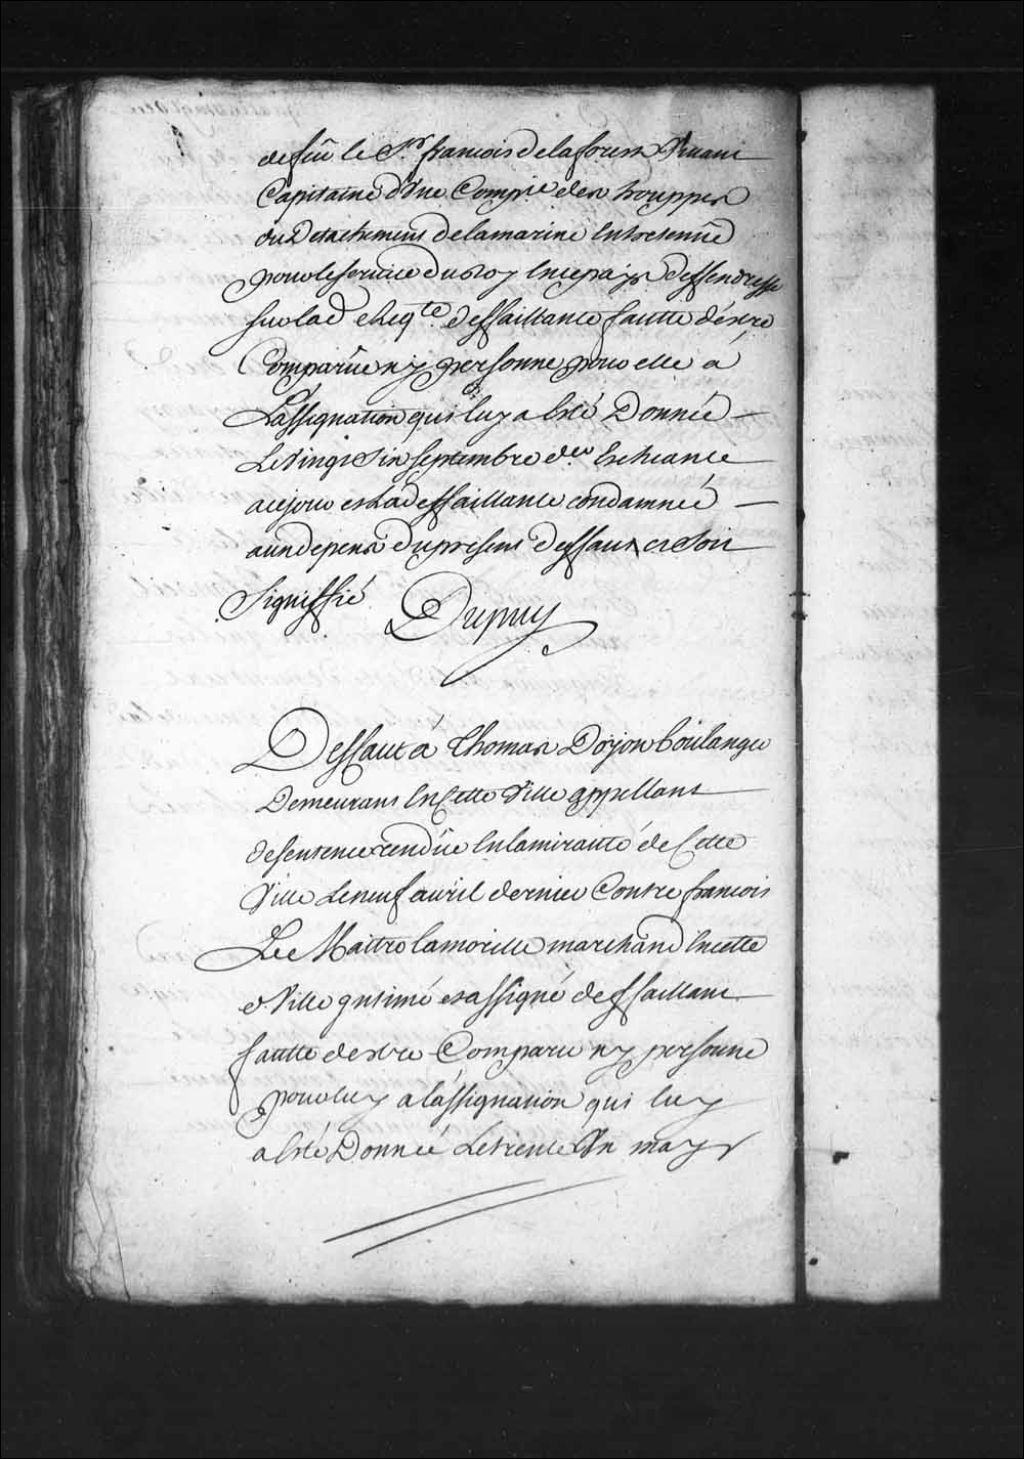 defeu le Sr. francois delaforest Vivant
Capitaine d'Vne Compie. des trouppes
du Detachement delamarine Entretenüe
pour le service du Roy En ce pays deffenderesse
sur lad Reqte. deffaillante fautte déstre
Comparüe ny personne pour elle á
Lassignation qui luy a Esté Donnée
Le Vingt Six Septembre der. Escheante
ce jour est lad deffaillante condamnée
aux depens du present deffaut et Soit
Signiffié. Dupuy
Deffaut á Thomas Doyon boulanger
Demeurant En Cette Ville appellant
de sentence rendüe En lamirauté de Cette
Ville Le neuf avril dernier Contre francois
Le Maitre lamorille marchand En cette
Ville jntimé et assigné deffaillant
fautte destre Comparu ny personne
pour luy a lássignation qui luy
a Esté Donnée Le trente Vn may